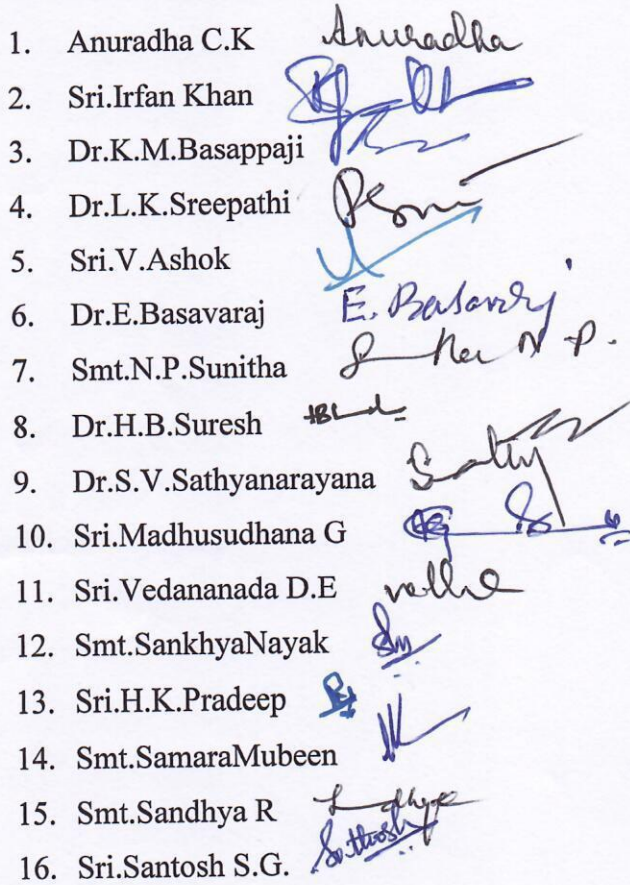 1. Anuradha C.K Anuradha
2. Sri.Irfan Khan
3. Dr.K.M.Basappaji
4. Dr.L.K.Sreepathi
5. Sri.V.Ashok
6. Dr.E.Basavaraj E. Basavaraj
7. Smt.N.P.Sunitha N.P.
8. Dr.H.B.Suresh
9. Dr.S.V.Sathyanarayana Sathy
10. Sri.Madhusudhana G
11. Sri.Vedananada D.E
12. Smt.SankhyaNayak
13. Sri.H.K.Pradeep
14. Smt.SamaraMubeen
15. Smt.Sandhya R
16. Sri.Santosh S.G. Santhosh